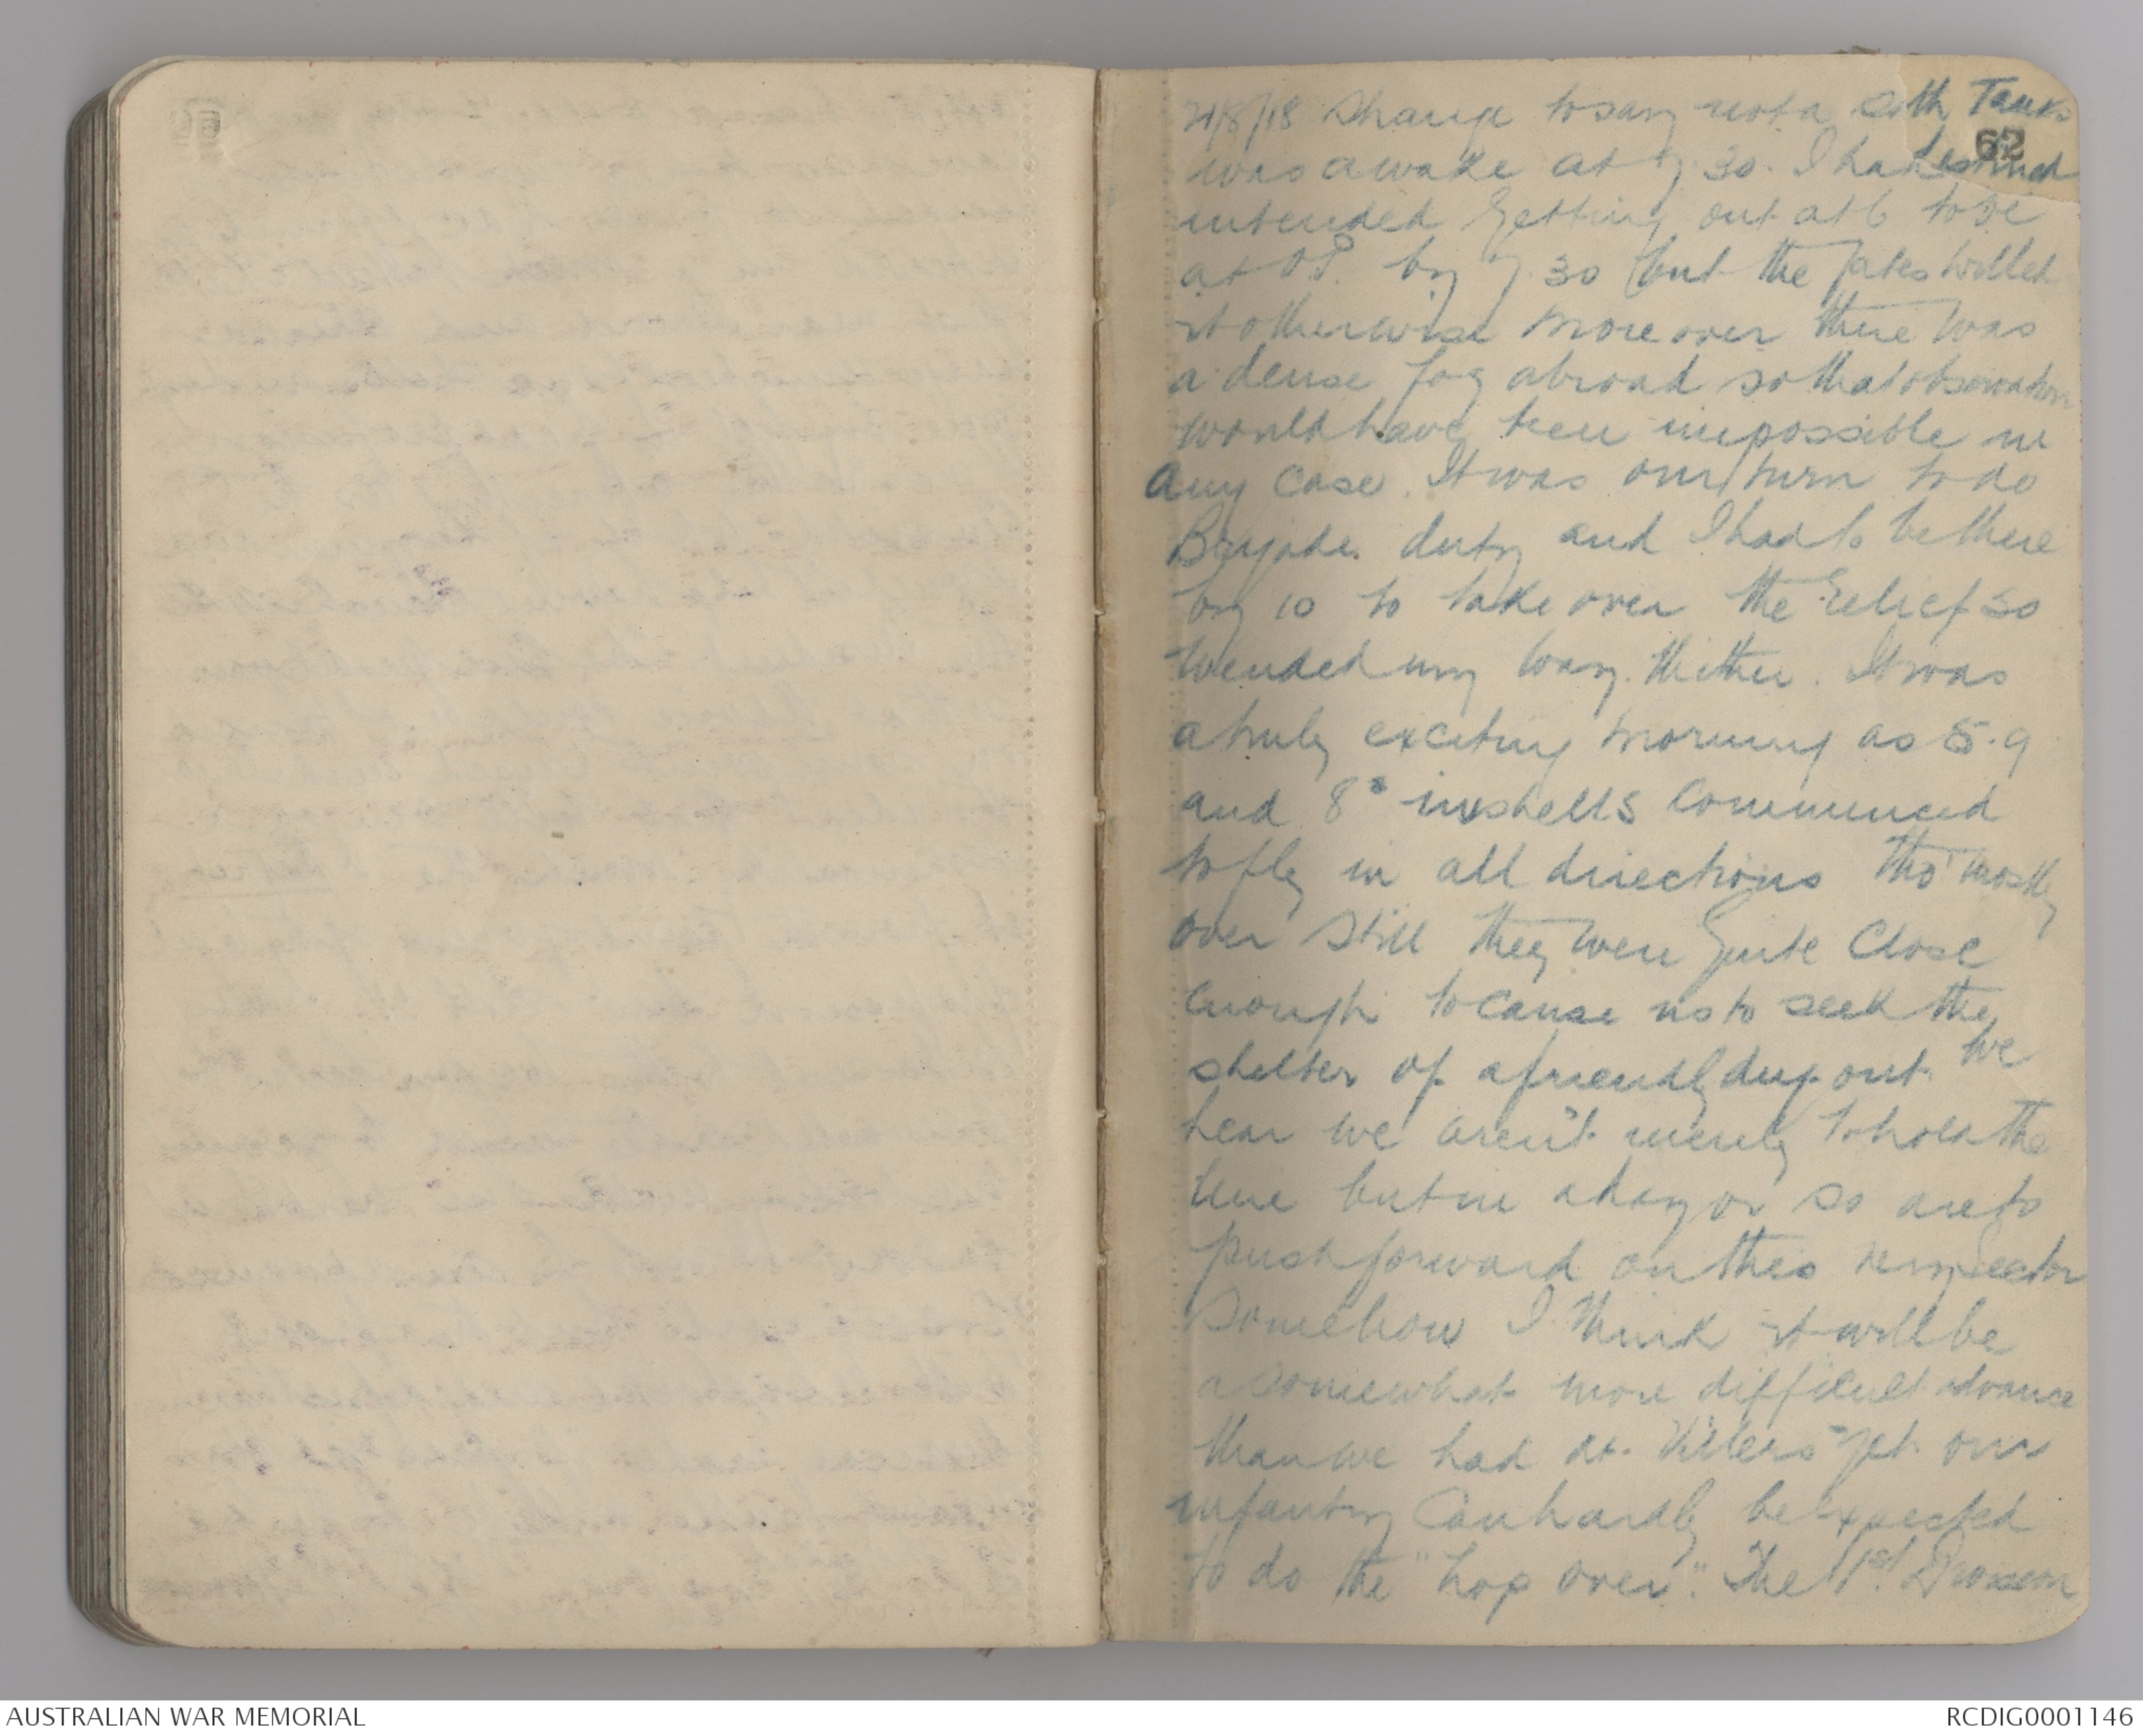 21/8/18 Strange to say not a
62
was awake at 7 30. I had
intended getting out at 6 to be
at O.P. by 7 30 but the fates willed
it otherwise moreover there was
a dense fog abroad so that observation
would have been impossible in
any case. It was our turn to do
Brigade duty and I had to be there
by 10 to take over the relief so
wended my way thither. It was
a truly exciting morning as 5.9
and 8" in shells commenced
to fly in all directions tho' mostly
over still they were quite close
enough to cause us to seek the
shelter of a friendly dug out. We
hear we aren't merely to hold the
line but in a day or so are to
push forward on this very sector
Somehow I think it will be
a somewhat more difficult advance
than we had at Villers yet our
infantry can hardly be expected
to do the "hop over". The 1st Division
AUSTRALIAN WAR MEMORIAL
RCDIG0001146